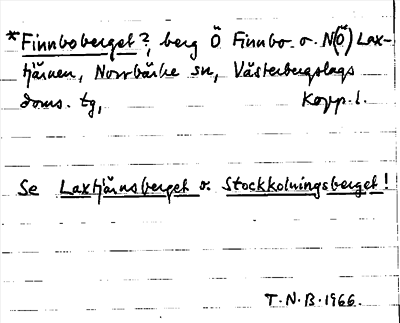 *Finnboberget?, berg Ö Finnbo o. N(Ö) Lax-
tjärnen, Norrbärke sn, Västerbergslags
doms. tg, Kopp. l.
Se Laxtjärnsberget o. Stockkolningsberget!
T.N.B. 1966.